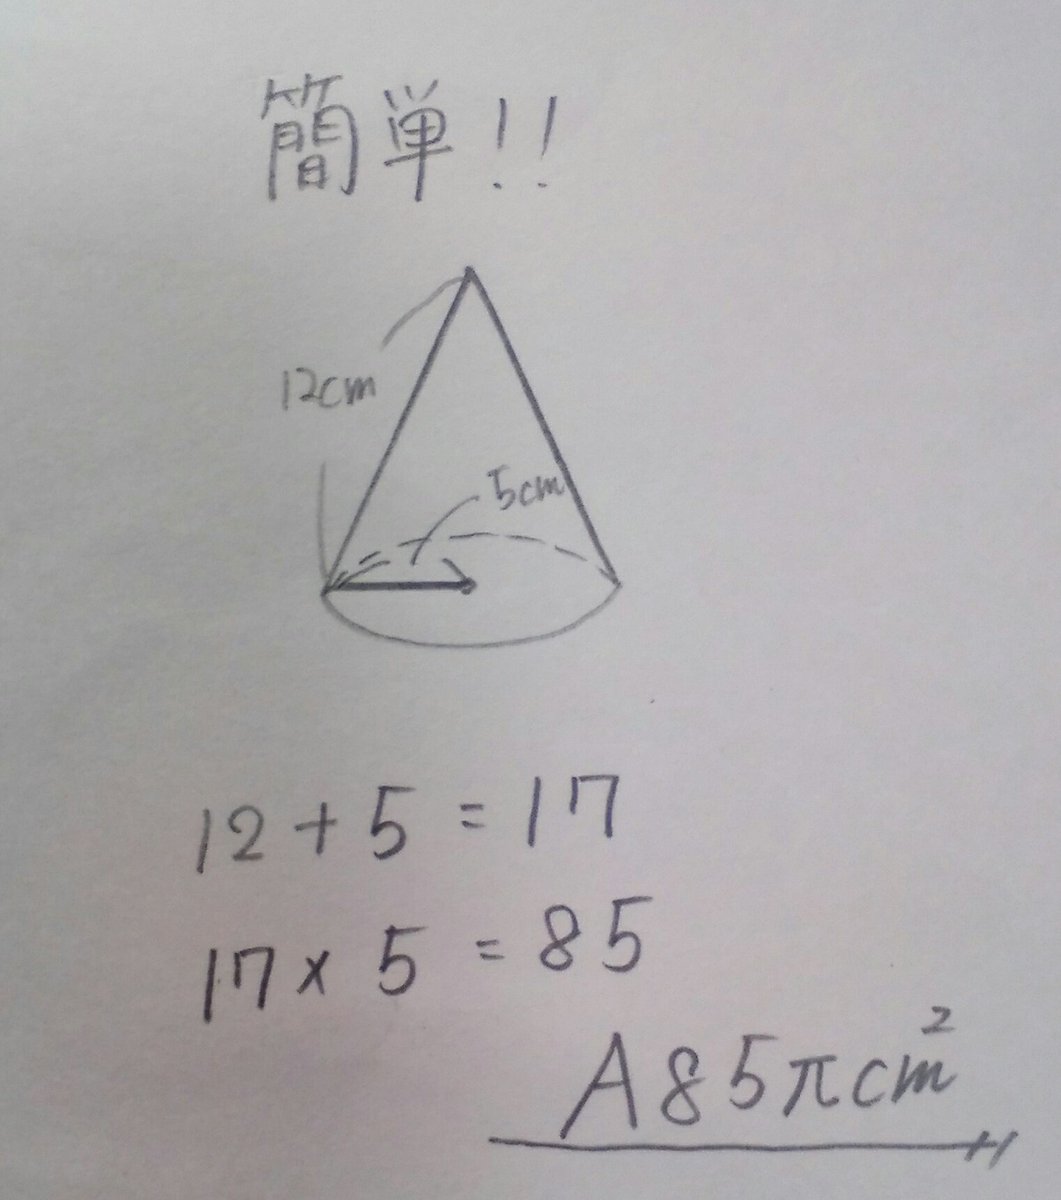 簡単!!
12cm
5cm
12+5=17
17×5=85
A85πcm²